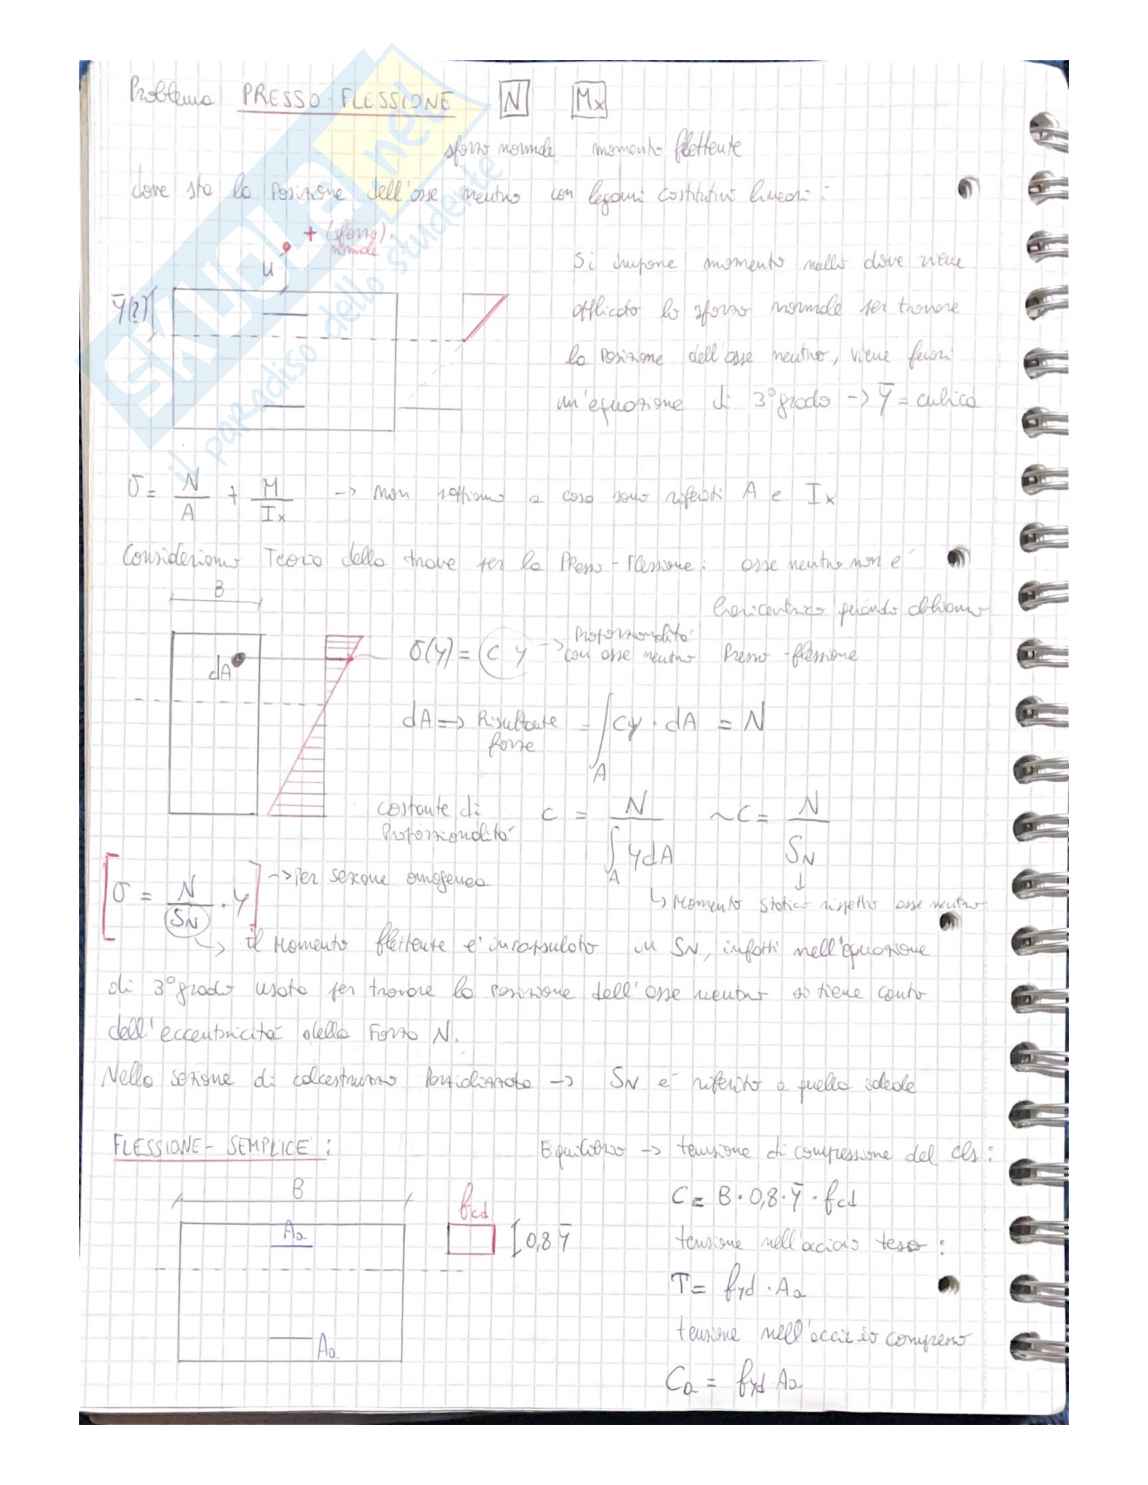 Problema PRESSO-FLESSIONE N Mx
sforzo normale momento flettente
dove sta la posizione dell'asse neutro con legami costitutivi lineari:
+ (sforzo)
normale
u
Si impone momento nullo dove viene
ȳ(?)
applicato lo sforzo normale per trovare
la posizione dell'asse neutro, viene fuori
un'equazione di 3° grado -> ȳ = cubica
σ = N/A + M/Ix -> non sappiamo a cosa sono riferiti A e Ix
Consideriamo Teoria della trave per la Presso-Flessione: asse neutro non è
B
baricentrico quando abbiamo
σ(y) = c y -> proporzionalità con asse neutro Presso-flessione
dA
dA => Risultante forze = ∫A cy · dA = N
costante di proporzionalità c = N / ∫A ydA ~ c = N / SN
↳ Momento statico rispetto asse neutro
[σ = N/SN · y] -> per sezione omogenea
-> il momento flettente è incapsulato in SN, infatti nell'equazione
di 3° grado usata per trovare la posizione dell'asse neutro si tiene conto
dell'eccentricità della Forza N.
Nella sezione di calcestruzzo -> SN è riferito a quella ideale
FLESSIONE-SEMPLICE: Equilibrio -> tensione di compressione del cls:
B
fcd
C = B · 0,8 · ȳ · fcd
Aa
0,8 ȳ
tensione nell'acciaio teso:
T = fyd · Aa
tensione nell'acciaio compresso
Aa
Ca = fyd Aa
SKUOLA.net
il paradiso dello studente